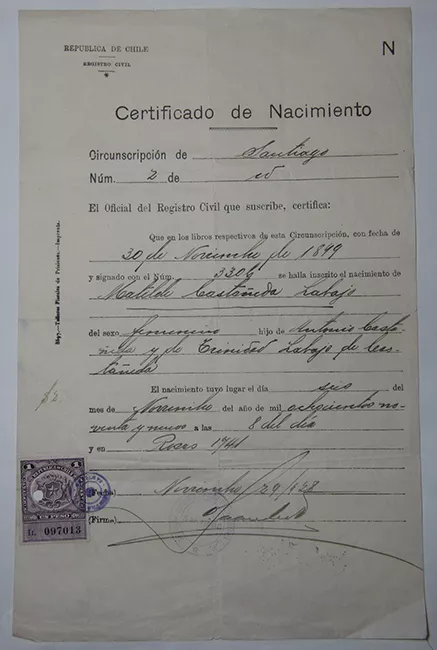 REPÚBLICA DE CHILE
N
REGISTRO CIVIL
Certificado de Nacimiento
Circunscripción de Santiago
Núm. 2 de id
El Oficial del Registro Civil que suscribe, certifica:
Que en los libros respectivos de esta Circunscripción, con fecha de
30 de Noviembre de 1899
y signado con el Núm. 3306 se halla inscrito el nacimiento de
Matilde Castañeda Labajo
del sexo femenino hijo de Antonio Casta-
ñeda y de Trinidad Labajo de Cas-
tañeda
El nacimiento tuvo lugar el día seis del
mes de Noviembre del año de mil ochocientos no-
venta y nueve a las 8 del dia
y en Rosas 1741
(Fecha) Noviembre 29/
(Firma)
UN PESO
097013